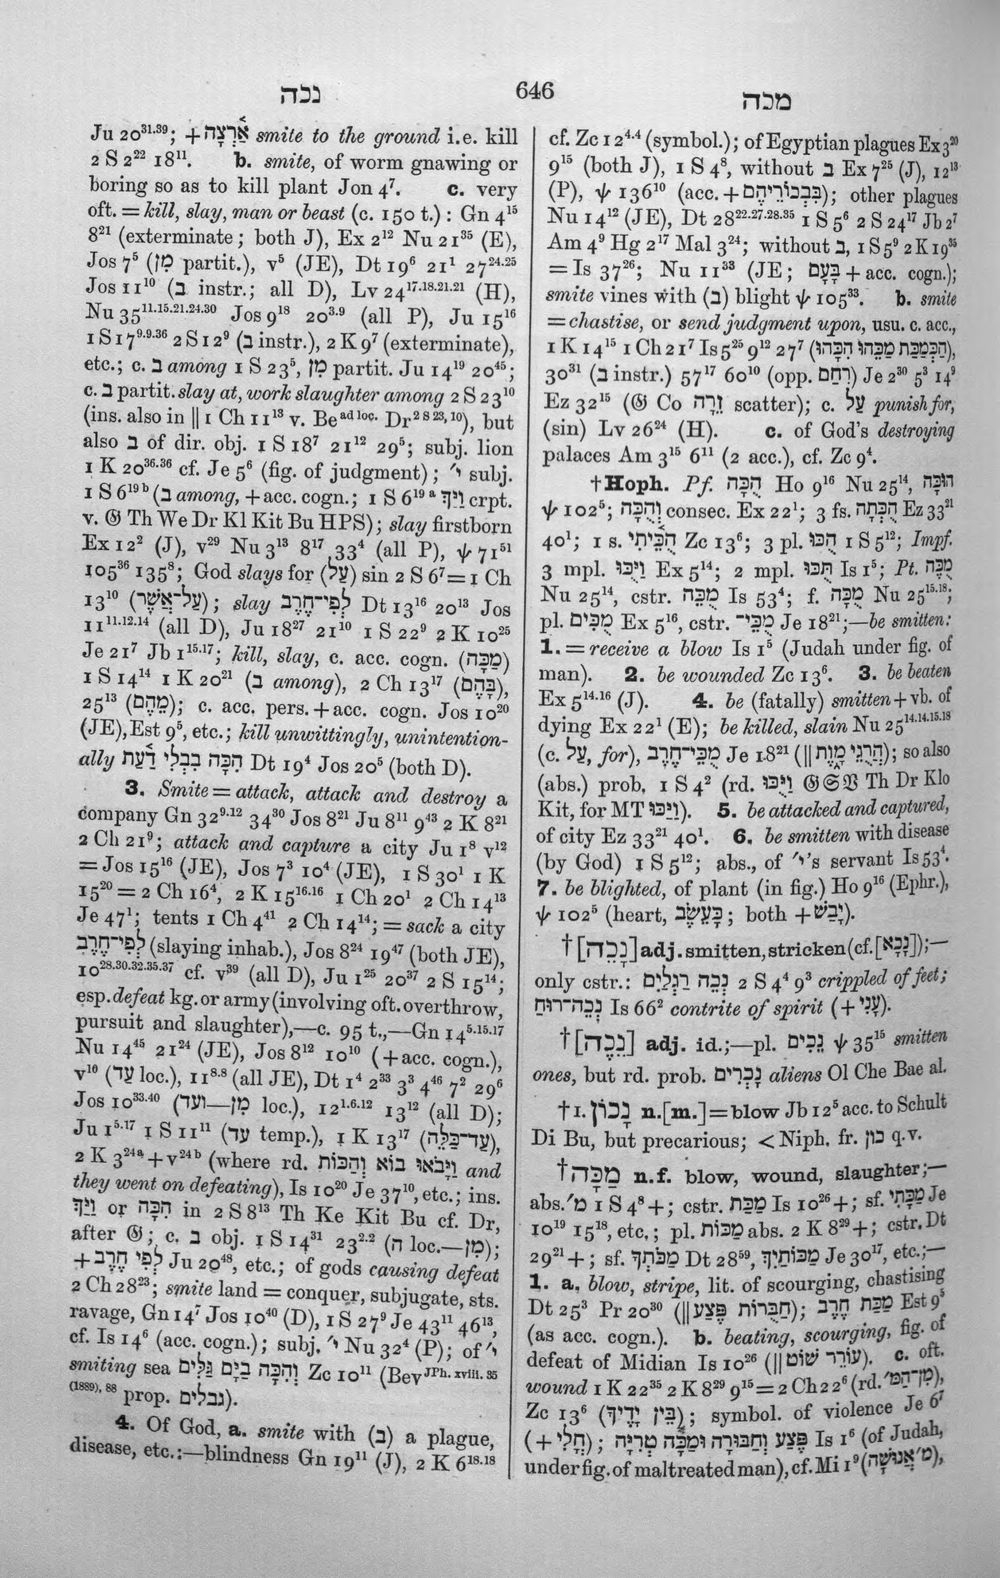 נכה
646
מכה
Ju 20³¹·³⁹; + אַרְצָה smite to the ground i.e. kill
2 S 2²² 18¹¹. b. smite, of worm gnawing or
boring so as to kill plant Jon 4⁷. c. very
oft. = kill, slay, man or beast (c. 150 t.): Gn 4¹⁵
8²¹ (exterminate; both J), Ex 2¹² Nu 21³⁵ (E),
Jos 7⁵ (מִן partit.), v⁵ (JE), Dt 19⁶ 21¹ 27²⁴·²⁵
Jos 11¹⁰ (בְּ instr.; all D), Lv 24¹⁷·¹⁸·²¹·²¹ (H),
Nu 35¹¹·¹⁵·²¹·²⁴·³⁰ Jos 9¹⁸ 20³·⁹ (all P), Ju 15¹⁶
1 S 17⁹·⁹·³⁶ 2 S 12⁹ (בְּ instr.), 2 K 9⁷ (exterminate),
etc.; c. בְּ among 1 S 23⁵, מִן partit. Ju 14¹⁹ 20⁴⁵;
c. בְּ partit. slay at, work slaughter among 2 S 23¹⁰
(ins. also in ‖ 1 Ch 11¹³ v. Be ad loc. Dr 2 S 23, 10), but
also בְּ of dir. obj. 1 S 18⁷ 21¹² 29⁵; subj. lion
1 K 20³⁶·³⁶ cf. Je 5⁶ (fig. of judgment); י׳ subj.
1 S 6¹⁹ᵇ (בְּ among, + acc. cogn.; 1 S 6¹⁹ᵃ וַיַּךְ crpt.
v. 𝔊 Th We Dr Kl Kit Bu HPS); slay firstborn
Ex 12² (J), v²⁹ Nu 3¹³ 8¹⁷ 33⁴ (all P), ψ 71⁵¹
105³⁶ 135⁸; God slays for (עַל) sin 2 S 6⁷ = 1 Ch
13¹⁰ (עַל־אֲשֶׁר); slay לְפִי־חֶרֶב Dt 13¹⁶ 20¹³ Jos
11¹¹·¹²·¹⁴ (all D), Ju 18²⁷ 21¹⁰ 1 S 22⁹ 2 K 10²⁵
Je 21⁷ Jb 1¹⁵·¹⁷; kill, slay, c. acc. cogn. (מַכָּה)
1 S 14¹⁴ 1 K 20²¹ (בְּ among), 2 Ch 13¹⁷ (בָּהֶם),
25¹³ (מֵהֶם); c. acc. pers. + acc. cogn. Jos 10²⁰
(JE), Est 9⁵, etc.; kill unwittingly, unintention-
ally הִכָּה בִבְלִי דַעַת Dt 19⁴ Jos 20⁵ (both D).
3. Smite = attack, attack and destroy a
company Gn 32⁹·¹² 34³⁰ Jos 8²¹ Ju 8¹¹ 9⁴³ 2 K 8²¹
2 Ch 21⁹; attack and capture a city Ju 1⁸ v¹²
= Jos 15¹⁶ (JE), Jos 7³ 10⁴ (JE), 1 S 30¹ 1 K
15²⁰ = 2 Ch 16⁴, 2 K 15¹⁶·¹⁶ 1 Ch 20¹ 2 Ch 14¹³
Je 47¹; tents 1 Ch 4⁴¹ 2 Ch 14¹⁴; = sack a city
לְפִי־חֶרֶב (slaying inhab.), Jos 8²⁴ 19⁴⁷ (both JE),
10²⁸·³⁰·³²·³⁵·³⁷ cf. v³⁹ (all D), Ju 1²⁵ 20³⁷ 2 S 15¹⁴;
esp. defeat kg. or army (involving oft. overthrow,
pursuit and slaughter),—c. 95 t.,—Gn 14⁵·¹⁵·¹⁷
Nu 14⁴⁵ 21²⁴ (JE), Jos 8¹² 10¹⁰ (+ acc. cogn.),
v¹⁰ (עַד loc.), 11⁸·⁸ (all JE), Dt 1⁴ 2³³ 3³ 4⁴⁶ 7² 29⁶
Jos 10³³·⁴⁰ (מִן—וְעַד loc.), 12¹·⁶·¹² 13¹² (all D);
Ju 1⁵·¹⁷ 1 S 11¹¹ (עַד temp.), 1 K 13¹⁷ (עַד־כַּלֵּה),
2 K 3²⁴ᵃ + v²⁴ᵇ (where rd. וַיָּבֹאוּ בוֹא וְהַכּוֹת and
they went on defeating), Is 10²⁰ Je 37¹⁰, etc.; ins.
וַיַּךְ or הִכָּה in 2 S 8¹³ Th Ke Kit Bu cf. Dr,
after 𝔊; c. בְּ obj. 1 S 14³¹ 23²·² (מִן—ה loc.);
+ לְפִי חֶרֶב Ju 20⁴⁸, etc.; of gods causing defeat
2 Ch 28²³; smite land = conquer, subjugate, sts.
ravage, Gn 14⁷ Jos 10⁴⁰ (D), 1 S 27⁹ Je 43¹¹ 46¹³,
cf. Is 14⁶ (acc. cogn.); subj. י׳ Nu 32⁴ (P); of י׳
smiting sea וְהִכָּה בַיָּם גַּלִּים Zc 10¹¹ (Bev JPh. xviii. 35
(1889), 88 prop. גבלים).
4. Of God, a. smite with (בְּ) a plague,
disease, etc.:—blindness Gn 19¹¹ (J), 2 K 6¹⁸·¹⁸
cf. Zc 12⁴·⁴ (symbol.); of Egyptian plagues Ex 3²⁰
9¹⁵ (both J), 1 S 4⁸, without בְּ Ex 7²⁵ (J), 12¹³
(P), ψ 136¹⁰ (acc. + בִּבְכוֹרֵיהֶם); other plagues
Nu 14¹² (JE), Dt 28²²·²⁷·²⁸·³⁵ 1 S 5⁶ 2 S 24¹⁷ Jb 2⁷
Am 4⁹ Hg 2¹⁷ Mal 3²⁴; without בְּ, 1 S 5⁹ 2 K 19³⁵
= Is 37²⁶; Nu 11³³ (JE; בָּעָם + acc. cogn.);
smite vines with (בְּ) blight ψ 105³³. b. smite
= chastise, or send judgment upon, usu. c. acc.,
1 K 14¹⁵ 1 Ch 21⁷ Is 5²⁵ 9¹² 27⁷ (הַכְּמַכַּת מַכֵּהוּ הִכָּהוּ),
30³¹ (בְּ instr.) 57¹⁷ 60¹⁰ (opp. רִחַם) Je 2³⁰ 5³ 14⁹
Ez 32¹⁵ (𝔊 Co זָרָה scatter); c. עַל punish for,
(sin) Lv 26²⁴ (H). c. of God's destroying
palaces Am 3¹⁵ 6¹¹ (2 acc.), cf. Zc 9⁴.
†Hoph. Pf. הֻכָּה Ho 9¹⁶ Nu 25¹⁴, הוּכָּה
ψ 102⁵; וְהֻכָּה consec. Ex 22¹; 3 fs. הֻכְּתָה Ez 33²¹
40¹; 1 s. הֻכֵּיתִי Zc 13⁶; 3 pl. הֻכּוּ 1 S 5¹²; Impf.
3 mpl. וַיֻּכּוּ Ex 5¹⁴; 2 mpl. תֻּכּוּ Is 1⁵; Pt. מֻכֶּה
Nu 25¹⁴, cstr. מֻכֵּה Is 53⁴; f. מֻכָּה Nu 25¹⁵·¹⁸;
pl. מֻכִּים Ex 5¹⁶, cstr. מֻכֵּי־ Je 18²¹;—be smitten:
1. = receive a blow Is 1⁵ (Judah under fig. of
man). 2. be wounded Zc 13⁶. 3. be beaten
Ex 5¹⁴·¹⁶ (J). 4. be (fatally) smitten + vb. of
dying Ex 22¹ (E); be killed, slain Nu 25¹⁴·¹⁴·¹⁵·¹⁸
(c. עַל, for), מֻכֵּי־חֶרֶב Je 18²¹ (‖ הֲרֻגֵי מָוֶת); so also
(abs.) prob. 1 S 4² (rd. וַיֻּכּוּ 𝔊 𝔖 𝔙 Th Dr Klo
Kit, for MT וַיַּכּוּ). 5. be attacked and captured,
of city Ez 33²¹ 40¹. 6. be smitten with disease
(by God) 1 S 5¹²; abs., of י׳'s servant Is 53⁴.
7. be blighted, of plant (in fig.) Ho 9¹⁶ (Ephr.),
ψ 102⁵ (heart, כָּעֵשֶׂב; both + יָבֵשׁ).
†[נָכֶה] adj. smitten, stricken (cf. [נָכָא]);—
only cstr.: נְכֵה רַגְלַיִם 2 S 4⁴ 9³ crippled of feet;
נְכֵה־רוּחַ Is 66² contrite of spirit (+ עָנִי).
†[נֵכֶה] adj. id.;—pl. נֵכִים ψ 35¹⁵ smitten
ones, but rd. prob. נָכְרִים aliens Ol Che Bae al.
†I. נָכוֹן n.[m.] = blow Jb 12⁵ acc. to Schult
Di Bu, but precarious; < Niph. fr. כון q.v.
†מַכָּה n.f. blow, wound, slaughter;—
abs. מ׳ 1 S 4⁸ +; cstr. מַכַּת Is 10²⁶ +; sf. מַכָּתִי Je
10¹⁹ 15¹⁸, etc.; pl. מַכּוֹת abs. 2 K 8²⁹ +; cstr. Dt
29²¹ +; sf. מַכֹּתְךָ Dt 28⁵⁹, מַכּוֹתַיִךְ Je 30¹⁷, etc.;—
1. a. blow, stripe, lit. of scourging, chastising
Dt 25³ Pr 20³⁰ (‖ חַבֻּרוֹת פֶּצַע); מַכַּת חֶרֶב Est 9⁵
(as acc. cogn.). b. beating, scourging, fig. of
defeat of Midian Is 10²⁶ (‖ עוֹרֵר שׁוֹט). c. oft.
wound 1 K 22³⁵ 2 K 8²⁹ 9¹⁵ = 2 Ch 22⁶ (rd. מִן־הַמּ׳),
Zc 13⁶ (בֵּין יָדֶיךָ); symbol. of violence Je 6⁷
(+ חֳלִי); פֶּצַע וְחַבּוּרָה וּמַכָּה טְרִיָּה Is 1⁶ (of Judah,
under fig. of maltreated man), cf. Mi 1⁹ (מ׳ אֲנוּשָׁה),